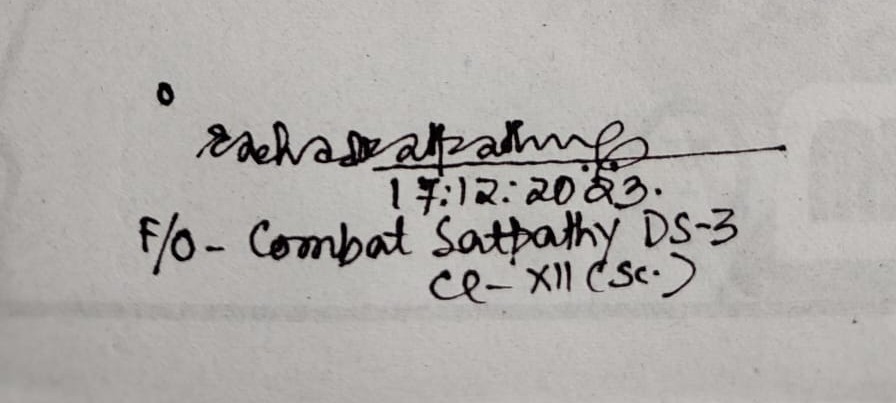 17:12:2023.
F/O - Combat Satpathy DS-3
Cl- XII (Sc.)